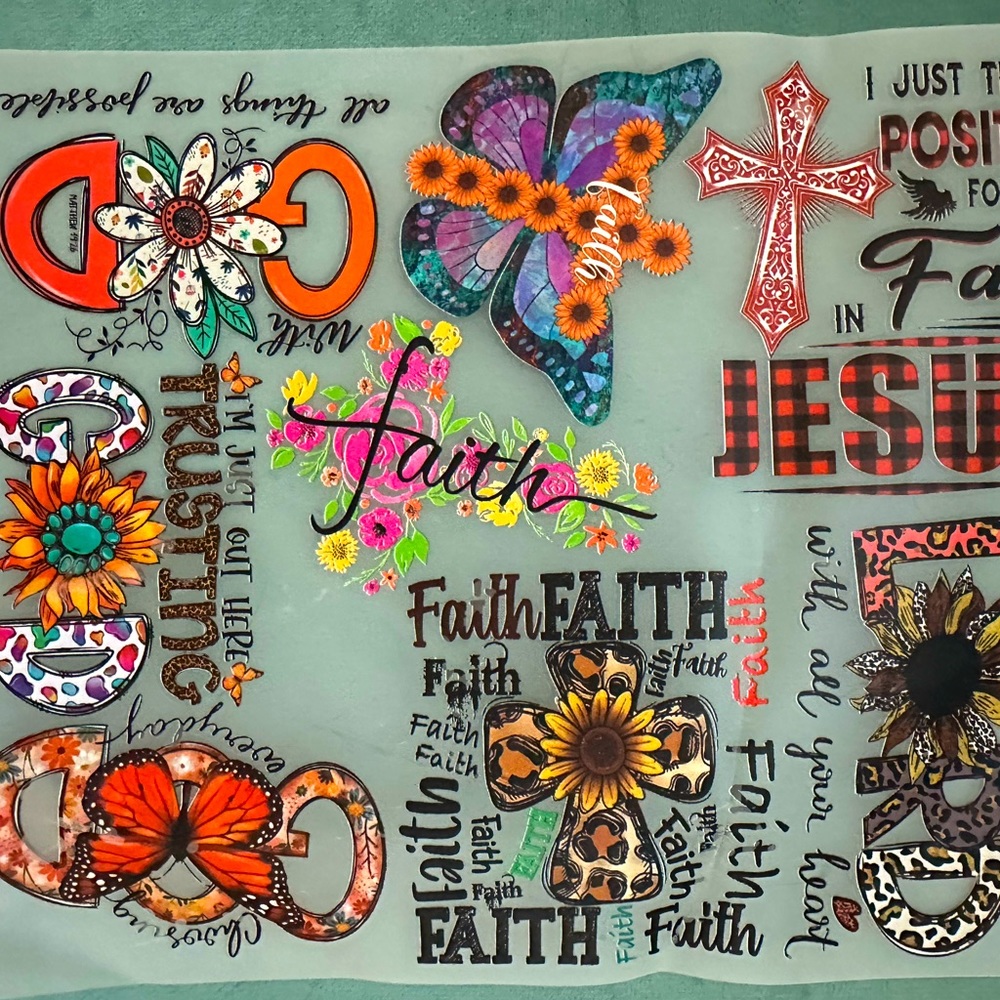 With
GOD
MATTHEW 19:26
all things are possible
Faith
I JUST
POSIT
FO
IN
Fa
JESU
faith
I'M JUST OUT HERE
TRUSTING
GOD
Choosing
GOD
everyday
Faith FAITH
Faith
Faith Faith
Faith
Faith
Faith
Faith
Faith
FAITH
Faith
FAITH
Faith
Faith
Faith
Faith
Faith
Faith
L RD
with all your heart